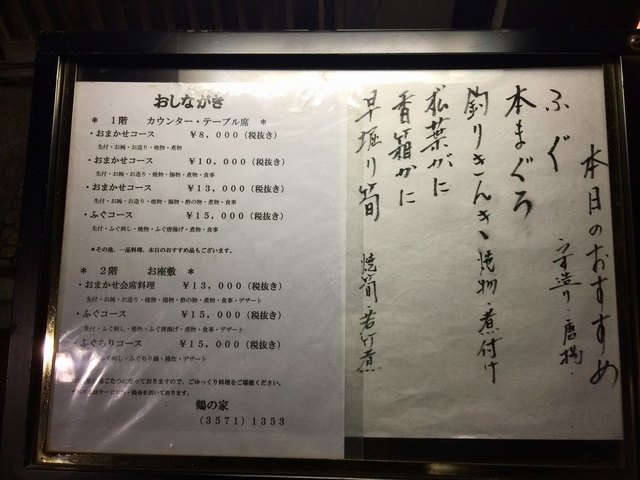 おしながき
＊ 1階 カウンター・テーブル席 ＊
・おまかせコース ￥8，000（税抜き）
先付・お椀・お造り・焼物・煮物
・おまかせコース ￥10，000（税抜き）
先付・お椀・お造り・焼物・揚物・煮物・食事
・おまかせコース ￥13，000（税抜き）
先付・お椀・お造り・焼物・揚物・酢の物・煮物・食事
・ふぐコース ￥15，000（税抜き）
先付・ふぐ刺し・焼物・ふぐ唐揚げ・煮物・食事
＊その他、一品料理、本日のおすすめ品もございます。
＊ 2階 お座敷 ＊
・おまかせ会席料理 ￥13，000（税抜き）
先付・お椀・お造り・焼物・揚物・酢の物・煮物・食事・デザート
・ふぐコース ￥15，000（税抜き）
先付・ふぐ刺し・焼物・ふぐ唐揚げ・煮物・食事・デザート
・ふぐちりコース ￥15，000（税抜き）
ふぐ刺し・ふぐちり鍋・雑炊・デザート
はこたつになっておりますので、ごゆっくり料理をご堪能ください。
はサービス料・税金を頂いております。
鶴の家
（3571）1353
本日のおすすめ
ふぐ うす造り・唐揚
本まぐろ
釣りきんき 焼物・煮付け
松葉がに
香箱かに
早堀り筍 焼筍 若竹煮